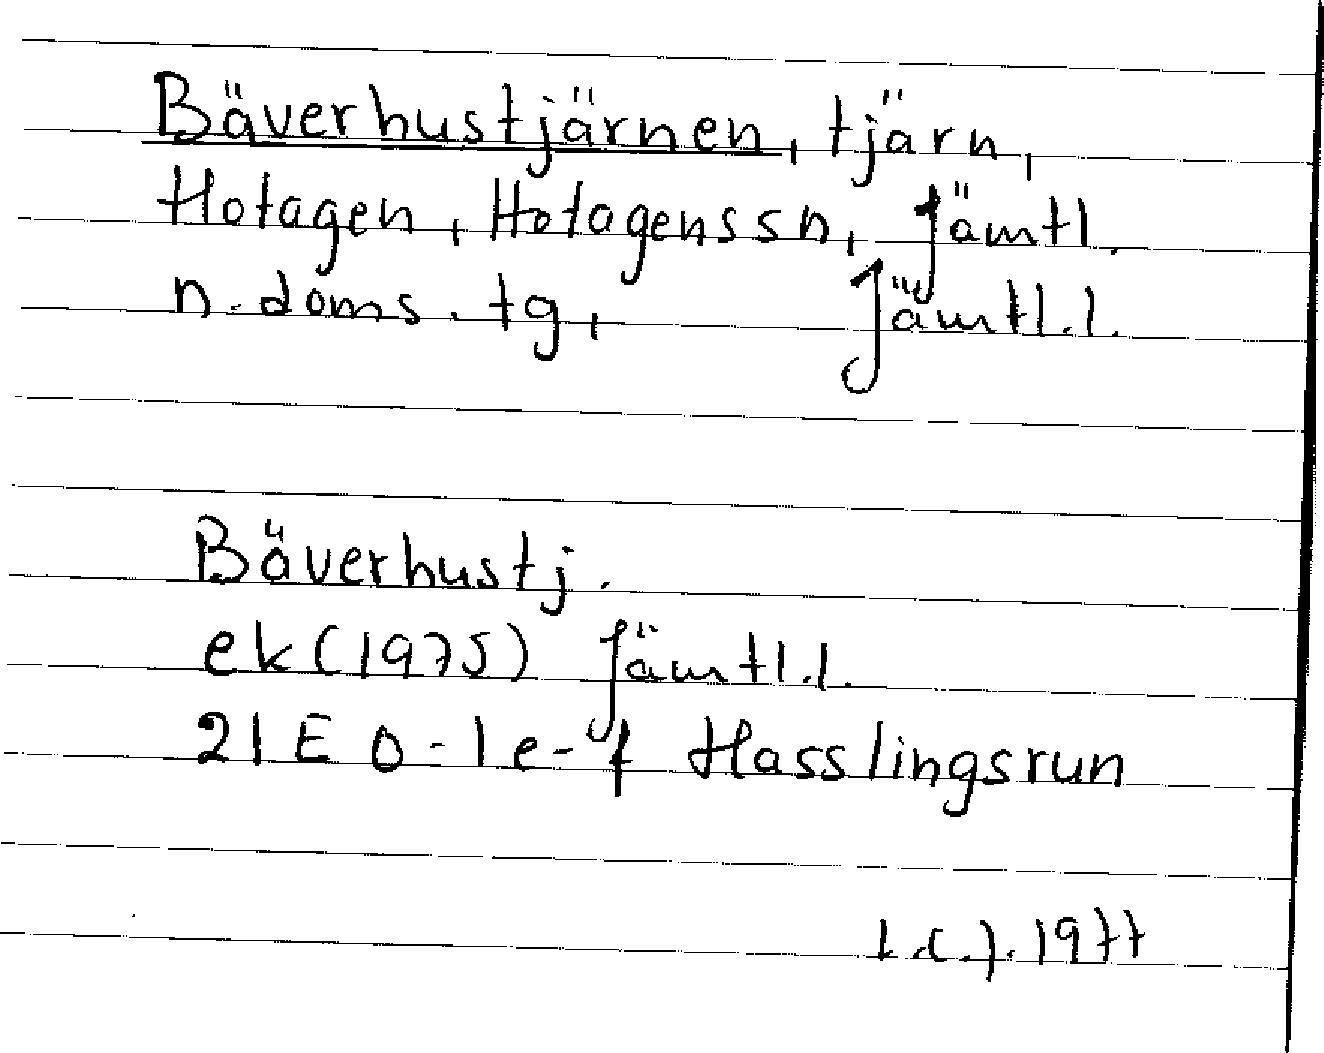 Bäverhustjärnen, tjärn,
Hotagen, Hotagens sn, Jämtl.
n. doms. tg, Jämtl.l.
Bäverhustj.
ek (1975) Jämtl.l.
21E 0-1e-f Hasslingsrun
1977